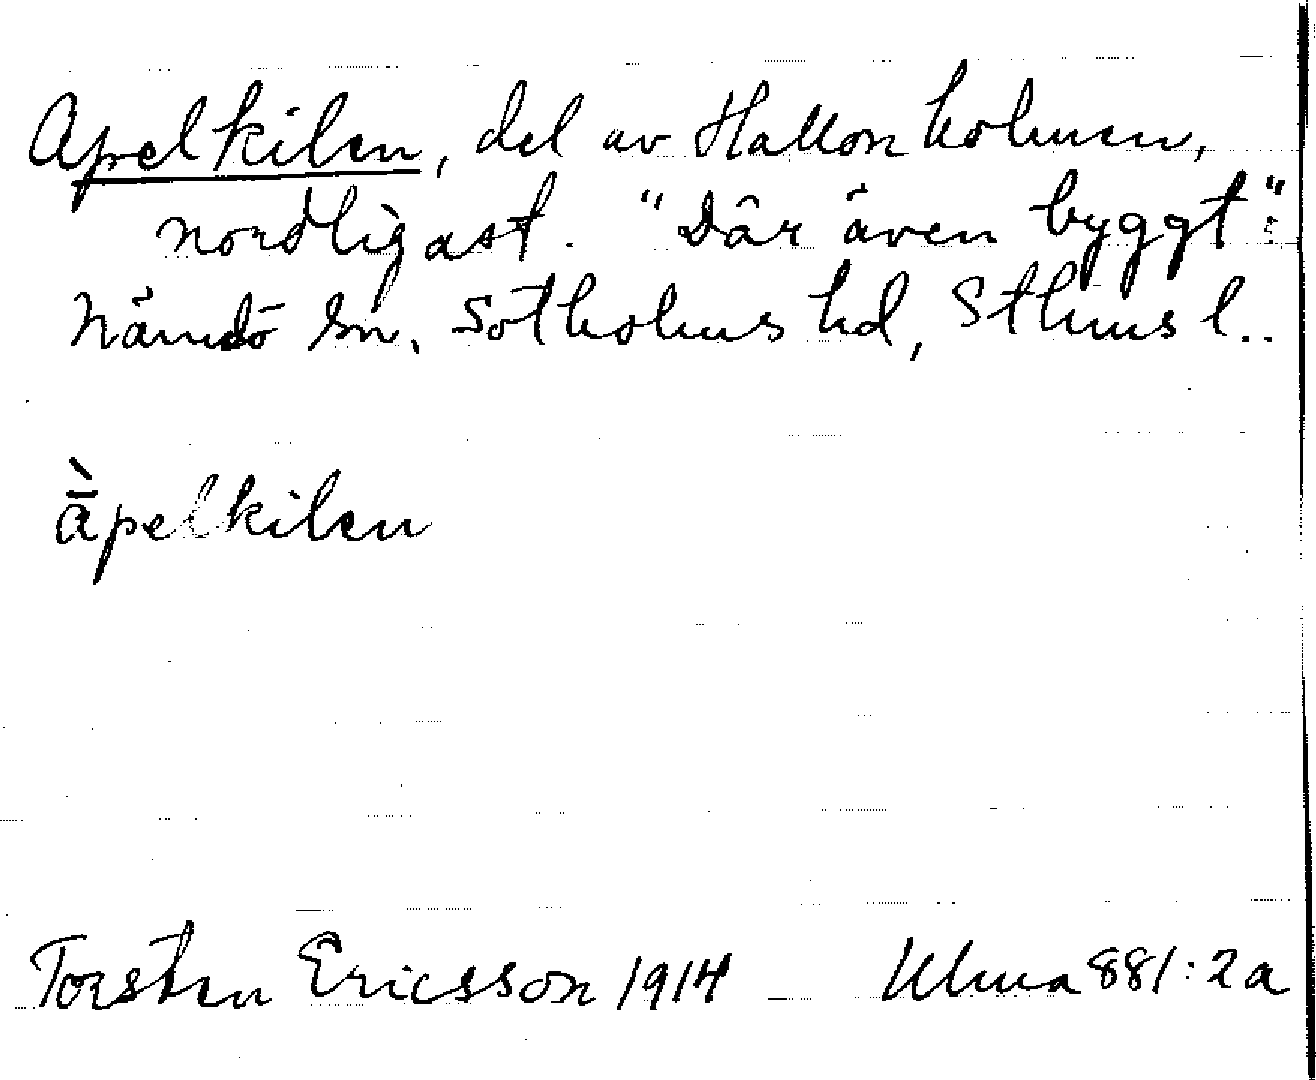 Apelkilen, del av Hallonholmen,
nordligast. "Där även byggt":
Nämdö sn, Sotholms hd, Sthms l..
ā̀pelkilen
Torsten Ericsson 1914 Ulma 881:2a